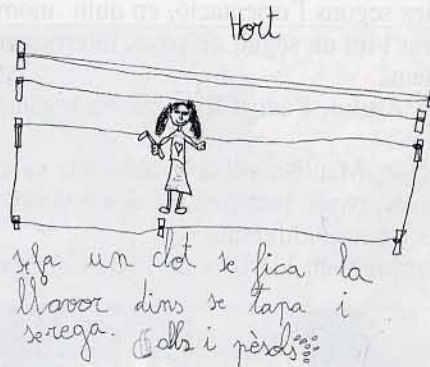 Hort
se fa un clot se fica la
llavor dins se tapa i
serega. alls i pèsols